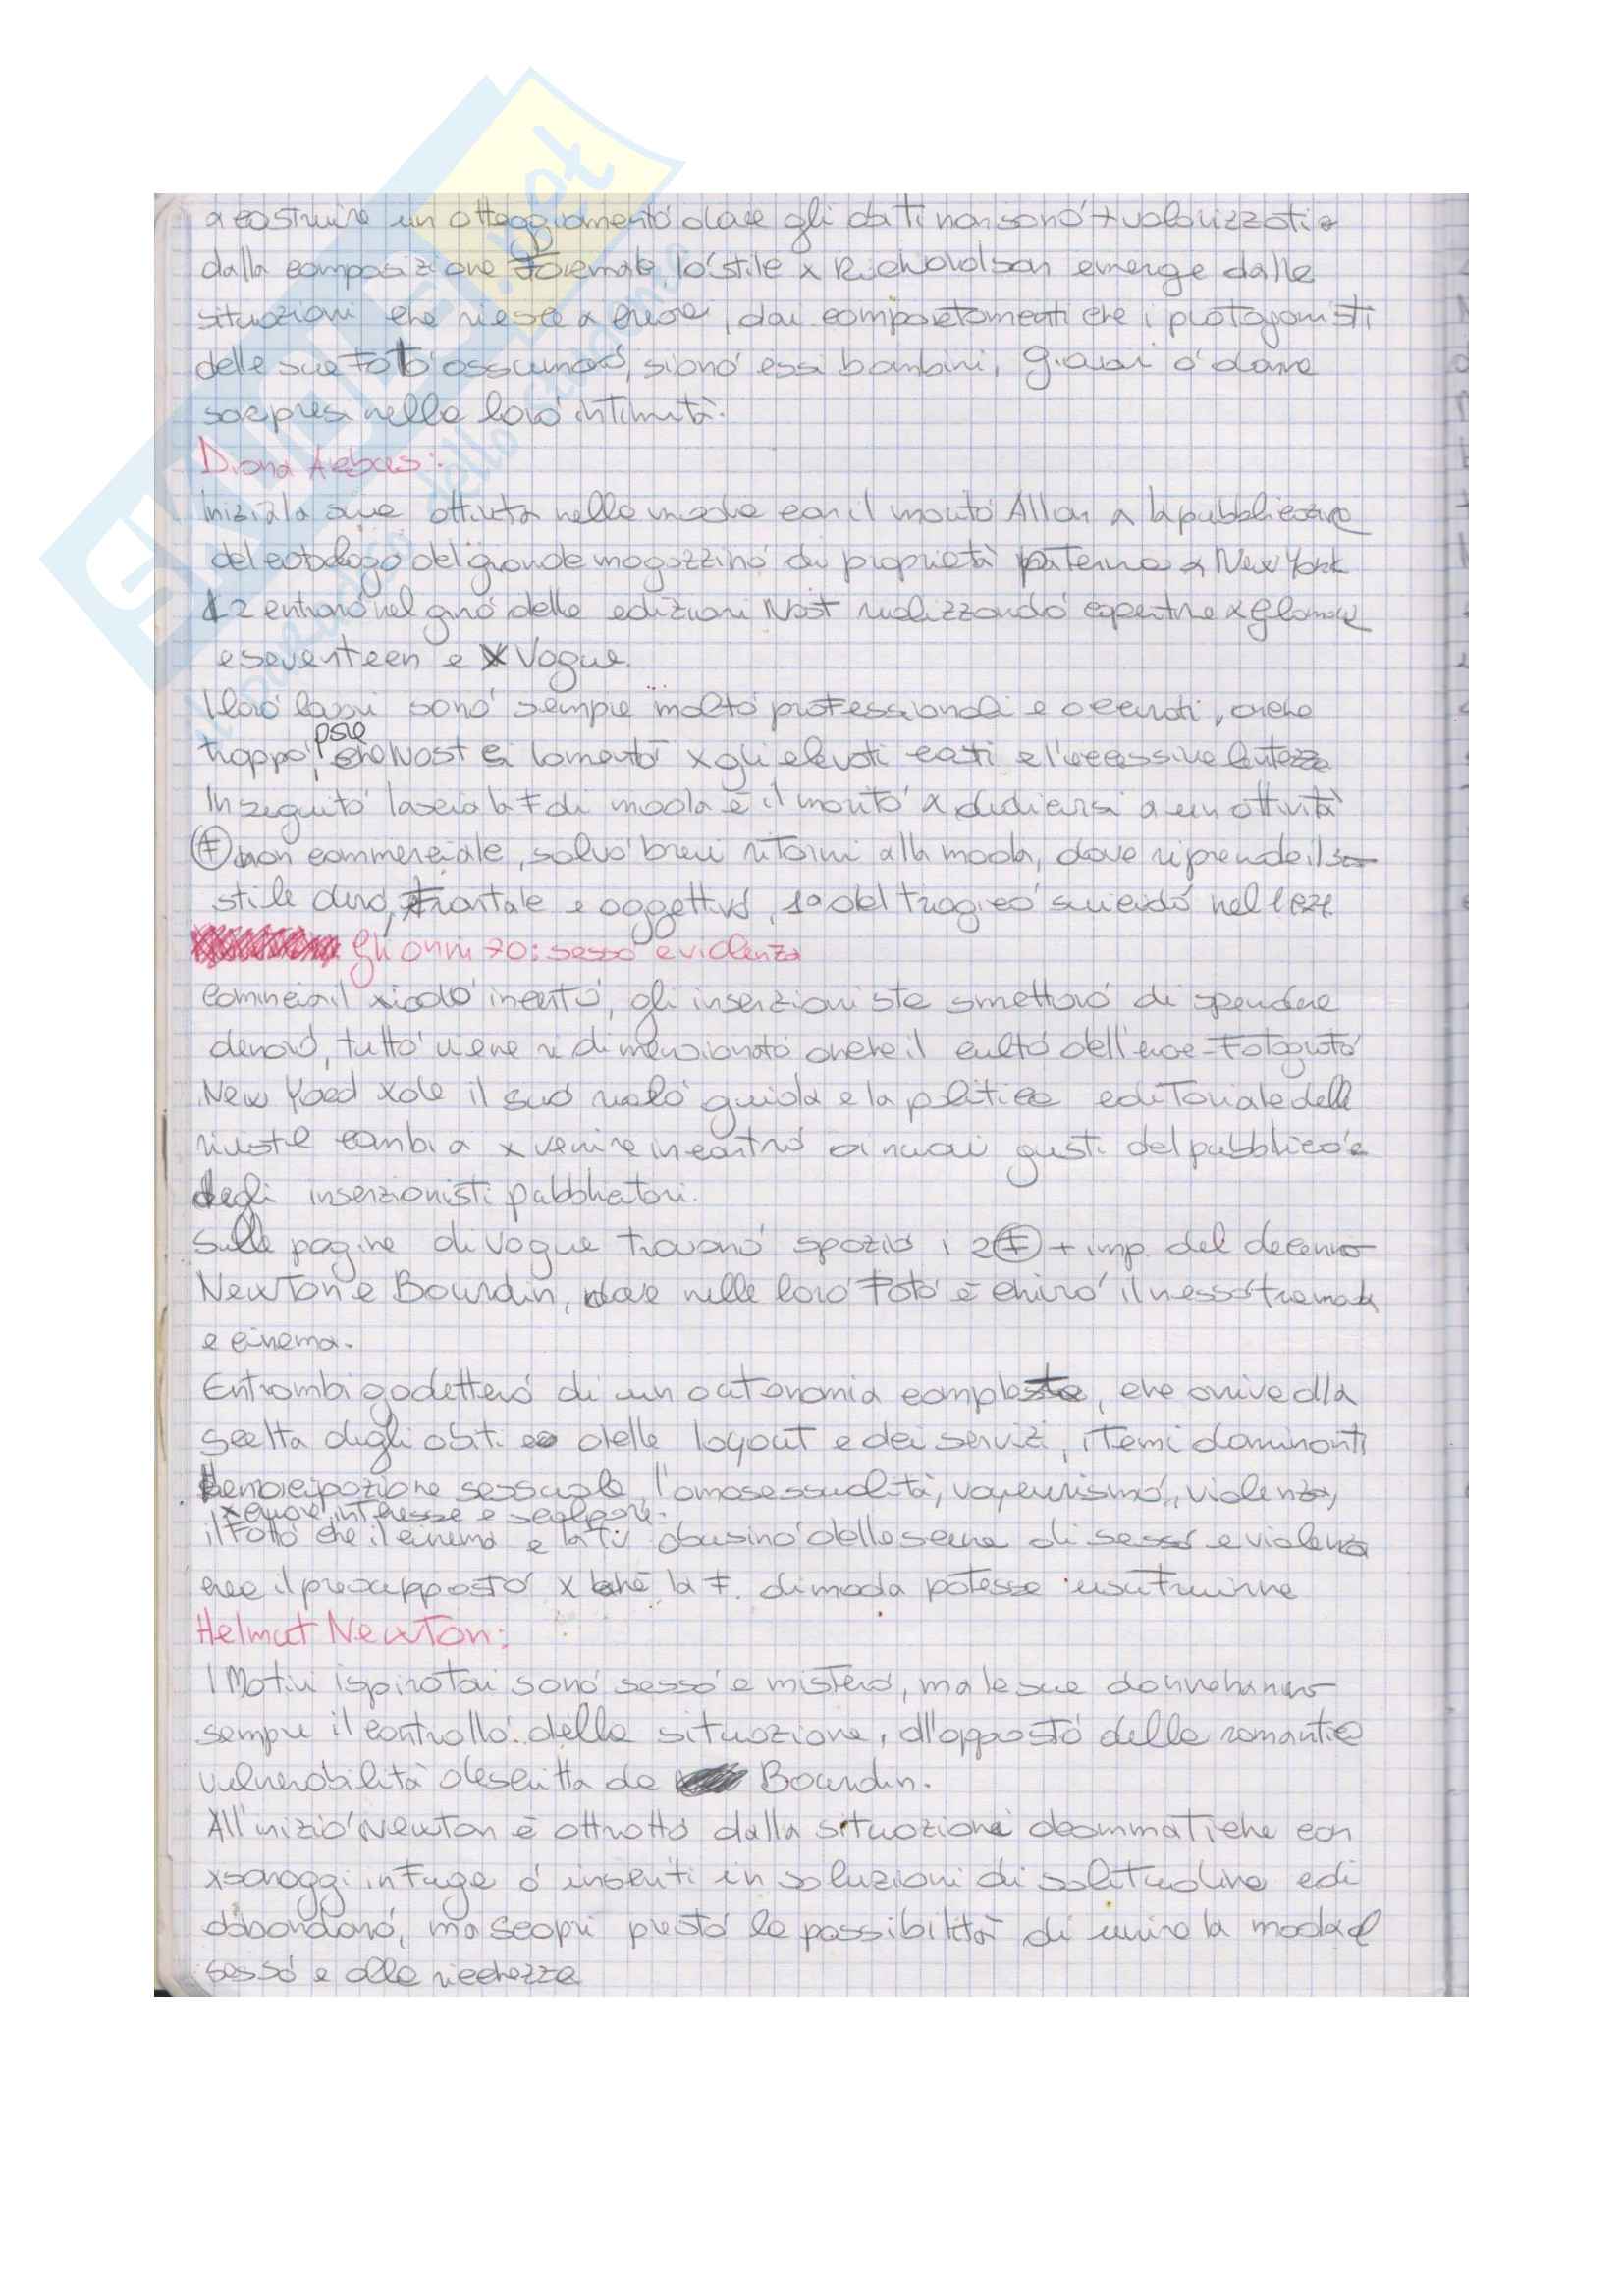 a costruire un atteggiamento dove gli abiti non sono + valorizzati
dalla composizione formale, lo stile x Richardson emerge dalle
situazioni che riesce a creare, dai comportamenti che i protagonisti
delle sue foto assumono, siano essi bambini, giovani o donne
sorpresi nella loro intimità.
Diana Arbus:
Inizia la sua attività nella moda con il marito Allan a la pubblicazione
del catalogo del grande magazzino di proprietà paterna a New York
I 2 entrano nel giro delle edizioni Nast realizzando copertine x Glamour
e seventeen e x Vogue.
I loro lavori sono sempre molto professionali e accurati, anche
troppo, poiché Nast si lamenta x gli elevati costi e l'eccessiva lentezza
In seguito lascia la F di moda e il marito x dedicarsi a un attività
F non commerciale, salvo brevi ritorni alla moda, dove riprende il suo
stile duro, frontale e oggettivo, 1a del tragico suicidio nel 1971.
gli anni 70: sesso e violenza
Comincia il xiodo incerto, gli inserzioniste smettono di spendere
denaro, tutto viene ridimensionato anche il culto dell'eroe-Fotografo
New York xde il suo ruolo guida e la politica editoriale delle
riviste cambia x venire incontro ai nuovi gusti del pubblico e
degli inserzionisti pubblicitari.
Sulle pagine di Vogue trovano spazio i 2 F + imp. del decennio
Newton e Bourdin, dove nelle loro foto è chiaro il nesso tra moda
e cinema.
Entrambi godettero di un autonomia completa, che arriva alla
scelta degli abiti e delle layout e dei servizi, i temi dominanti
l'emancipazione sessuale, l'omosessualità, voyeurismo, violenza,
x creare interesse e scalpore.
il fatto che il cinema e la tv abusino delle scene di sesso e violenza
crea il presupposto x che la F. di moda potesse usufruirne
Helmut Newton:
I Motivi ispiratori sono sesso e mistero, ma le sue donne hanno
sempre il controllo della situazione, all'opposto della romantica
vulnerabilità descritta da Bourdin.
All'inizio Newton è attratto dalla situazioni drammatiche con
xsonaggi in fuga o inseriti in soluzioni di solitudine e di
abbandono, ma scoprì presto le possibilità di unire la moda al
sesso e alla ricchezza